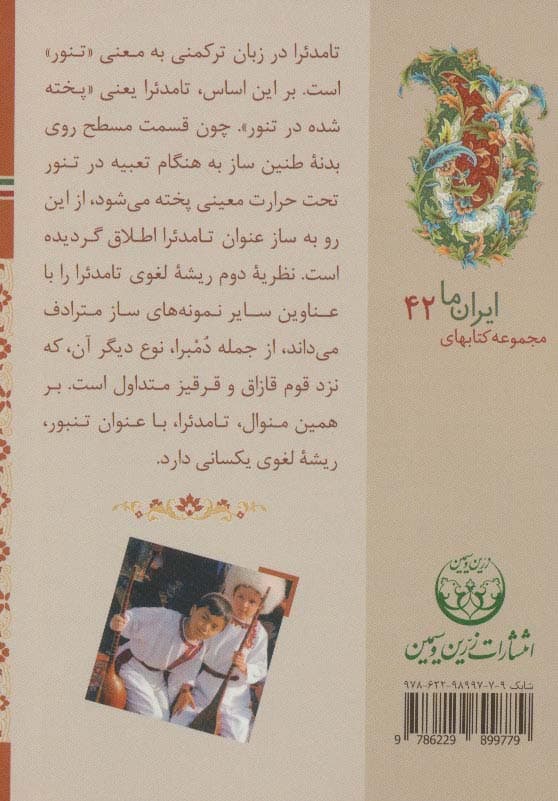 تامدئرا در زبان ترکمنی به معنی «تنور»
است. بر این اساس، تامدئرا یعنی «پخته
شده در تنور». چون قسمت مسطح روی
بدنهٔ طنین ساز به هنگام تعبیه در تنور
تحت حرارت معینی پخته می‌شود، از این
رو به ساز عنوان تامدئرا اطلاق گردیده
است. نظریهٔ دوم ریشهٔ لغوی تامدئرا را با
عناوین سایر نمونه‌های ساز مترادف
می‌داند، از جمله دُمْبرا، نوع دیگر آن، که
نزد قوم قازاق و قرقیز متداول است. بر
همین منوال، تامدئرا، با عنوان تنبور،
ریشهٔ لغوی یکسانی دارد.
ایران ما ۴۲
مجموعه کتابهای
زرین و سیمین
انتشارات زرّین و سیمین
شابک ۹-۷-۹۸۹۹۷-۶۲۲-۹۷۸
9 786229 899779